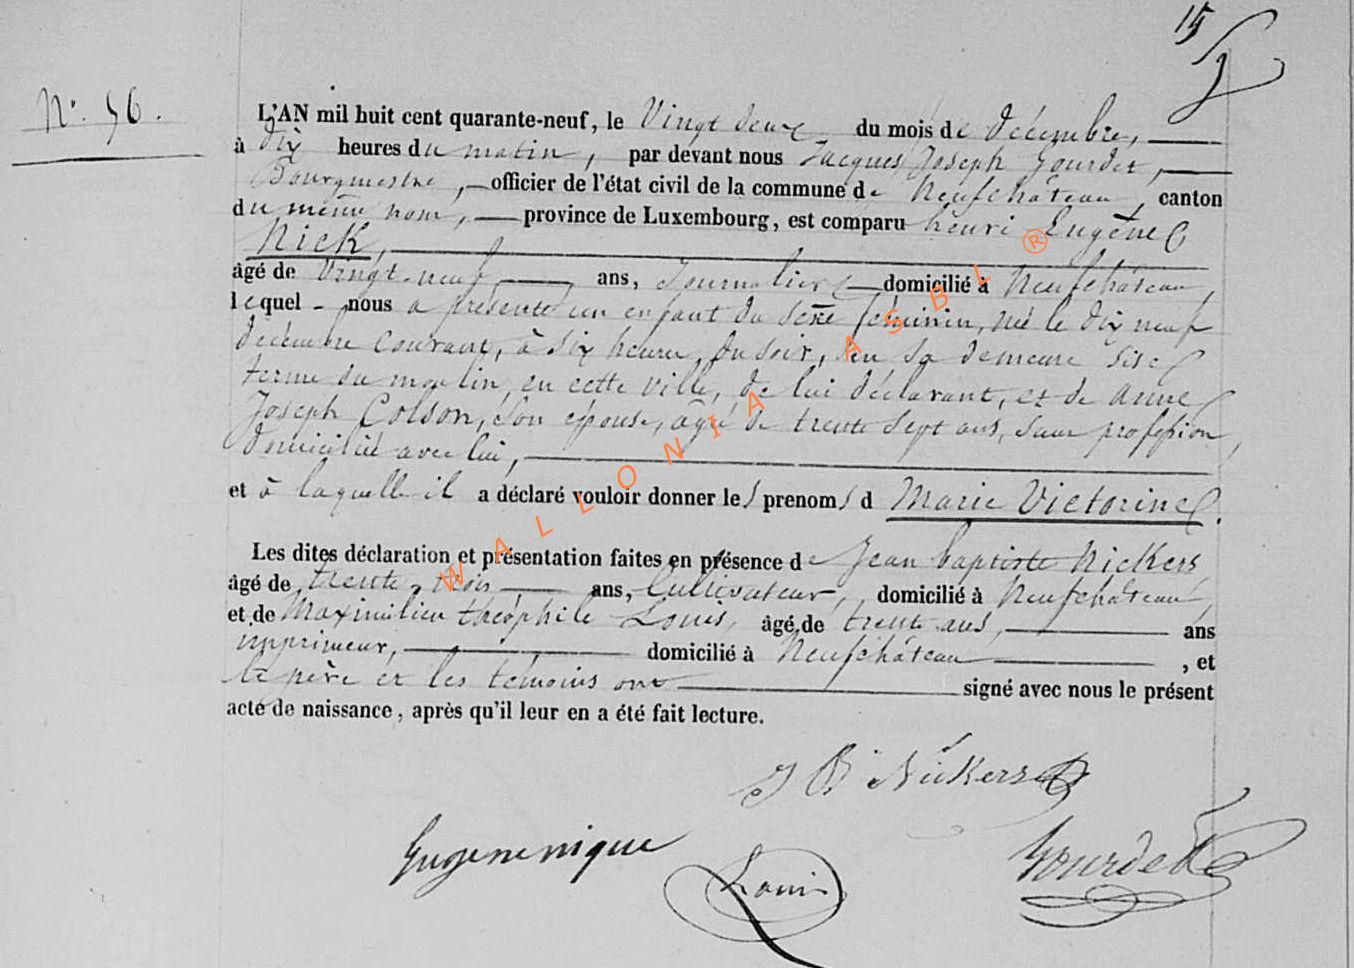 15
N° 56.
L'AN mil huit cent quarante-neuf, le Vingt deux du mois de décembre,
à dix heures du matin, par devant nous Jacques Joseph Gourdet,
Bourgmestre, officier de l'état civil de la commune de Neufchâteau, canton
du même nom, province de Luxembourg, est comparu henri Eugène
Nick,
âgé de Vingt-neuf ans, Journalier domicilié à Neufchâteau,
lequel nous a présenté un enfant du sexe féminin, né le dix neuf
décembre courant, à six heures du soir, en sa demeure sise
ferme du moulin, en cette ville, de lui déclarant, et de Anne
Joseph Colson, son épouse, agé de trente sept ans, sans profession,
domiciliée avec lui,
et à laquelle il a déclaré vouloir donner les prenoms d Marie Victorine.
Les dites déclaration et présentation faites en présence de Jean baptiste Nickers
âgé de trente-trois ans, Cultivateur, domicilié à Neufchâteau,
et de Maximilien théophile Louis, âgé de trente ans, ans
imprimeur, domicilié à Neufchâteau, et
le père et les témoins ont signé avec nous le présent
acte de naissance, après qu'il leur en a été fait lecture.
J B Nickers
Eugene nique
Louis
Gourdet
WALLONIA ASBL ®